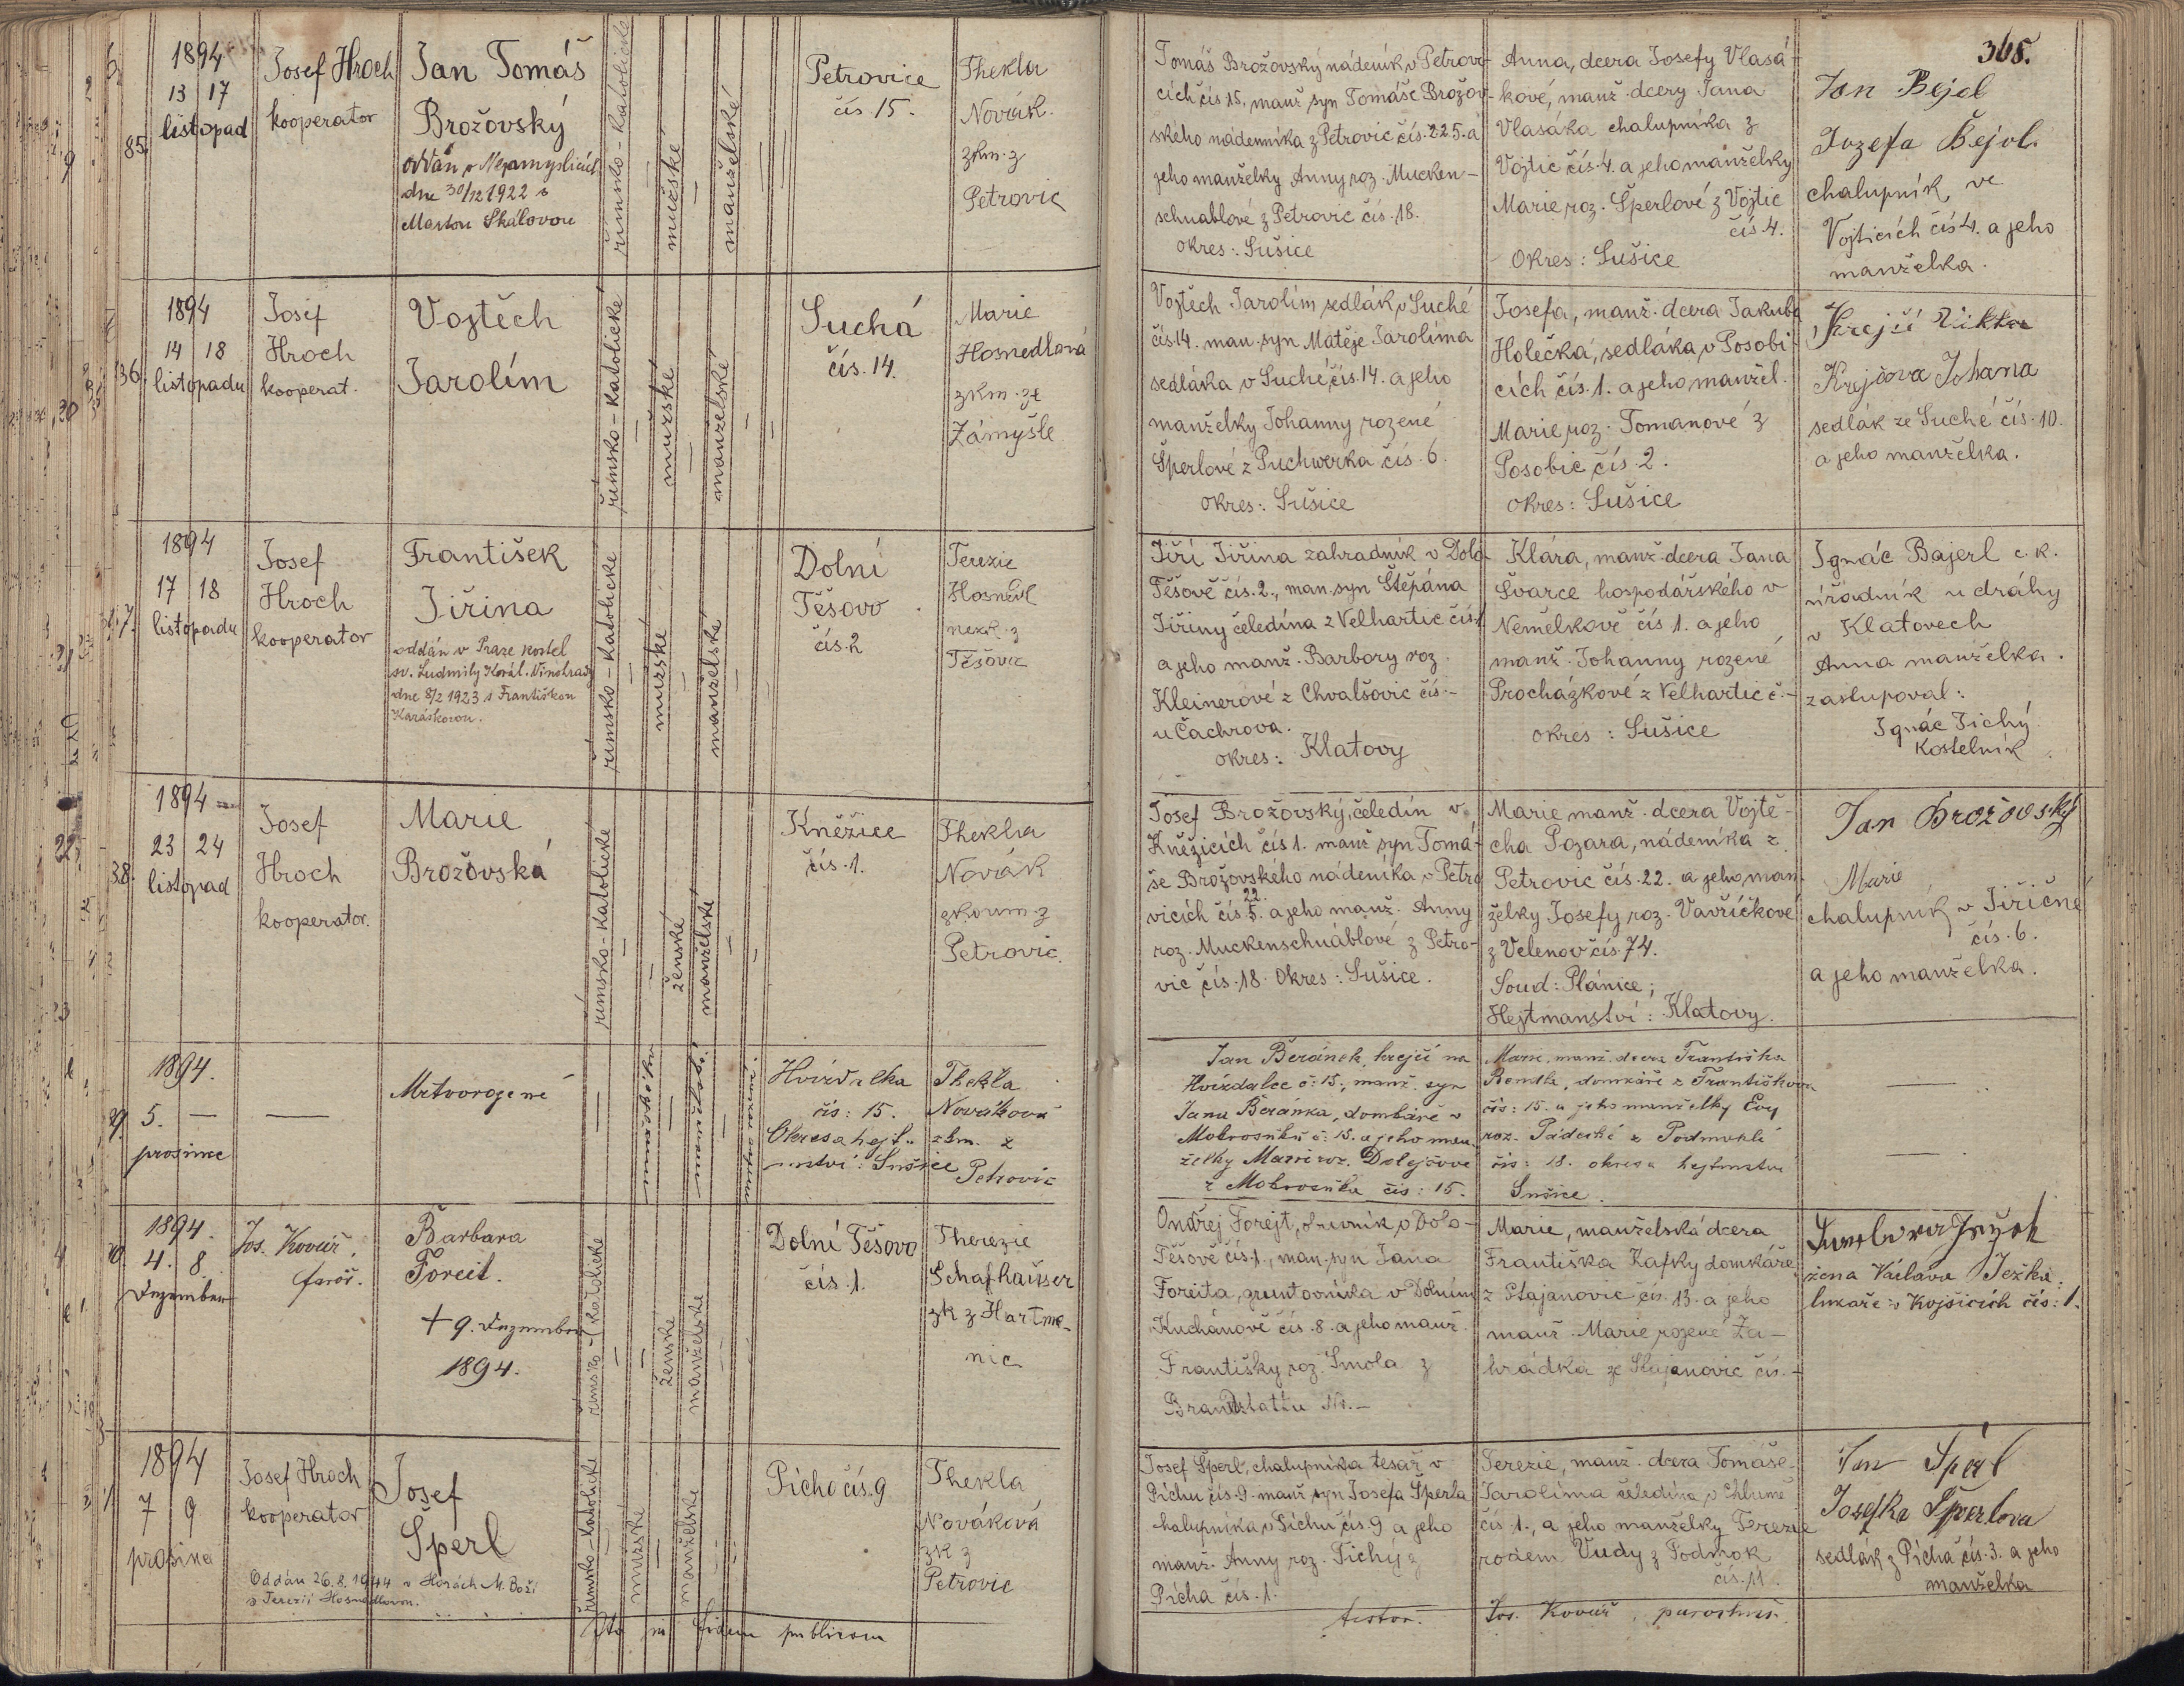 365.
85.
1894
13 17
listopad
Josef Hroch
kooperator
Jan Tomáš
Brožovský
oddán v Nezamyslicích
dne 30/12 1922 s
Marton Skálovou
římsko-katolické
mužské
manželské
Petrovice
čís. 15.
Thekla
Novák.
zkm. z
Petrovic
Tomáš Brožovský nádeník v Petrovi-
cích čís 15. manž syn Tomáše Brožov-
ského nádenníka z Petrovic čís. 225. a
jeho manželky Anny roz. Mucken-
schnablové z Petrovic čís. 18.
okres: Sušice
Anna, dcera Josefy Vlasá-
kové, manž. dcery Jana
Vlasáka chalupníka z
Vojtic čís. 4. a jeho manželky
Marie roz. Šperlové z Vojtic
čís. 4.
Okres: Sušice
Jan Bejol
Jozefa Bejol.
chalupník, ve
Vojticích čís 4. a jeho
manželka.
36.
1894
14 18
listopadu
Josef
Hroch
kooperat.
Vojtěch
Jarolím
římsko-katolické
mužské
manželské
Suchá
čís. 14.
Marie
Hosnedlová
zkm. ze
Zámyšle
Vojtěch Jarolím sedlák v Suché
čís. 14. man. syn Matěje Jarolíma
sedláka v Suché čís. 14. a jeho
manželky Johanny rozené
Šperlové z Puchwerka čís. 6.
okres: Sušice
Josefa, manž. dcera Jakuba
Holečka, sedláka v Posobi-
cích čís. 1. a jeho manžel.
Marie roz. Tomanové z
Posobic čís. 2.
okres: Sušice
Krejčí
Krejčova Johana
sedlák ze Suché čís. 10.
a jeho manželka.
37.
1894
17 18
listopadu
Josef
Hroch
kooperator
František
Jiřina
oddán v Praze kostel
sv. Ludmily Král. Vinohrady
dne 8/2 1923 s Františkou
Karáskovou.
římsko-katolické
mužské
manželské
Dolní
Těšovo
čís. 2
Terezie
Hosnedl
nezk. z
Těšova
Jiří Jiřina zahradník v Dol.
Těšově čís. 2., man. syn Štěpána
Jiřiny čeledína z Velhartic čís.
a jeho manž. Barbory roz.
Kleinerové z Chvalšovic čís. -
u Čachrova.
okres: Klatovy
Klára, manž. dcera Jana
Švarce hospodářského v
Němelkově čís 1. a jeho
manž. Johanny rozené
Procházkové z Velhartic č. -
okres: Sušice
Ignác Bajerl c. k.
úřadník u dráhy
v Klatovech
Anna manželka.
zastupoval:
Ignác Tichý
Kostelník
38.
1894
23 24
listopad
Josef
Hroch
kooperator.
Marie
Brožovská
římsko-katolické
ženské
manželské
Kněžice
čís. 1.
Thekla
Novák
zkoum. z
Petrovic.
Josef Brožovský, čeledín v
Kněžicích čís 1. manž syn Tomá-
še Brožovského nádeníka v Petro
vicích čís. 22. a jeho manž. Anny
roz. Muckenschnáblové z Petro-
vic čís. 18. Okres: Sušice.
Marie manž. dcera Vojtě-
cha Pozara, nádeníka z
Petrovic čís. 22. a jeho man-
želky Josefy roz. Vavřičkové
z Velenov čís. 74.
Soud: Plánice;
Hejtmanství: Klatovy.
Jan Brožovský
Marie
chalupník v Jiřičné
čís. 6.
a jeho manželka.
39.
1894.
5. -
prosince
Mrtvorozené
mužského
manželské
Hvízdalka
čís: 15.
Okres a hejt-
manství: Sušice
Thekla
Nováková
zkm. z
Petrovic
Jan Beránek, krejčí na
Hvízdalce č: 15., manž. syn
Jana Beránka, domkáře v
Mokrosuku č: 15. a jeho man-
želky Marie roz. Dolejšové
z Mokrosuku čís: 15.
Marie, manž. dcera Františka
Bendla, domkáře z Františkova
čís: 15. a jeho manželky Evy
roz. Pádecké z Podmokli
čís: 18. okres a hejtmství
Sušice.
40.
1894.
4. 8.
Dezember
Jos. Kovář,
farář.
Barbara
Foreit.
+ 9. Dezember
1894.
římsko-katolické
ženské
manželské
Dolní Těšovo
čís. 1.
Therezie
Schafhauser
zk z Hartma-
nic
Ondřej Forejt, dřevník v Dol.
Těšově čís. 1., man. syn Jana
Foreita, gruntovníka v Dolním
Kochánově čís. 8. a jeho manž.
Františky roz. Smola z
Brandstattu No. -
Marie, manželská dcera
Františka Kafky domkáře
z Stajanovic čís. 13. a jeho
manž. Marie rozené Za-
hrádka ze Stajanovic čís. -
žena Václava Ježka:
lukaře v Kojšicích čís: 1.
1894
7 9
prosince
Josef Hroch
kooperator
Josef
Šperl
Oddán 26. 8. 1944 v Horách M. Boží
s Terezií Hosnedlovou.
římsko-katolické
mužské
manželské
Pícho čís. 9
Thekla
Nováková
zk z
Petrovic
Josef Šperl, chalupníka tesař v
Píchu čís. 9. manž syn Josefa Šperla
chalupníka v Píchu čís. 9 a jeho
manž. Anny roz. Tichý z
Pícha čís. 1.
Terezie, manž. dcera Tomáše
Jarolíma čeledína v Chlumě
čís 1., a jeho manželky Terezie
rodem Vudy z Podmok
čís. 11.
Jan Šperl
Josefka Šperlova
sedlák z Pícha čís. 3. a jeho
manželka
Dto in fidem publicam
testor. Jos. Kovář, parochus.